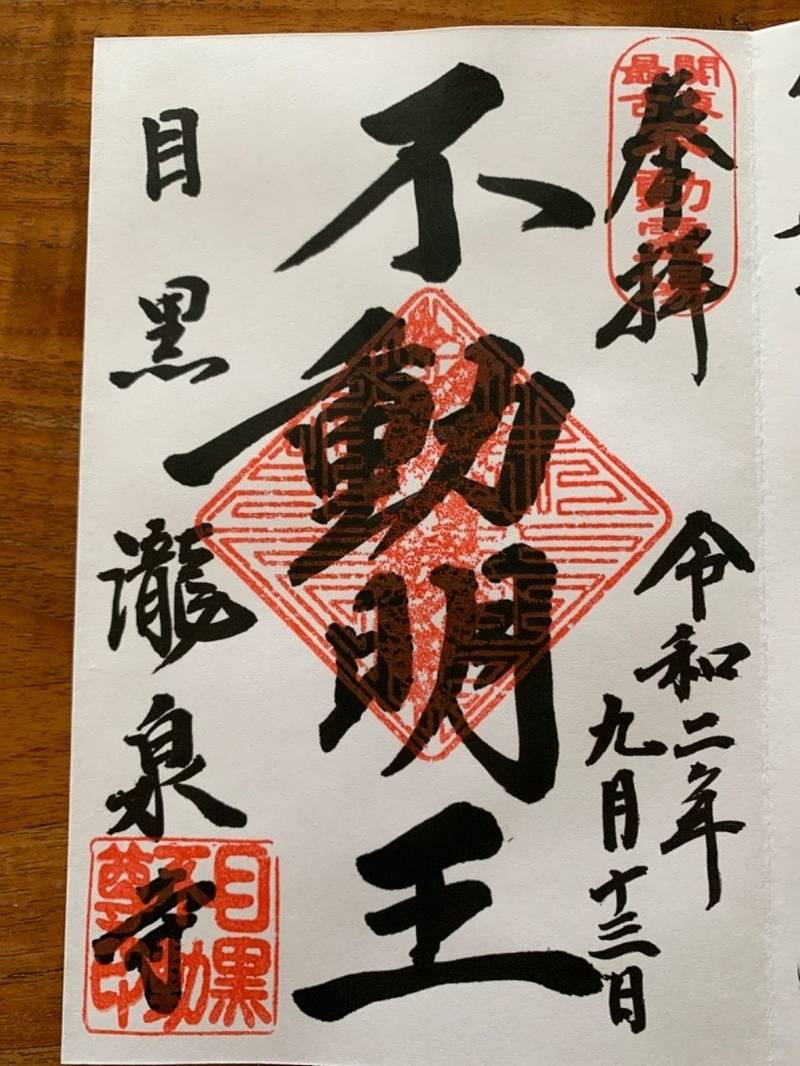 奉拝
関東最古不動霊場
令和二年
九月十三日
不動明王
目黒
瀧泉寺
目黒不動尊印